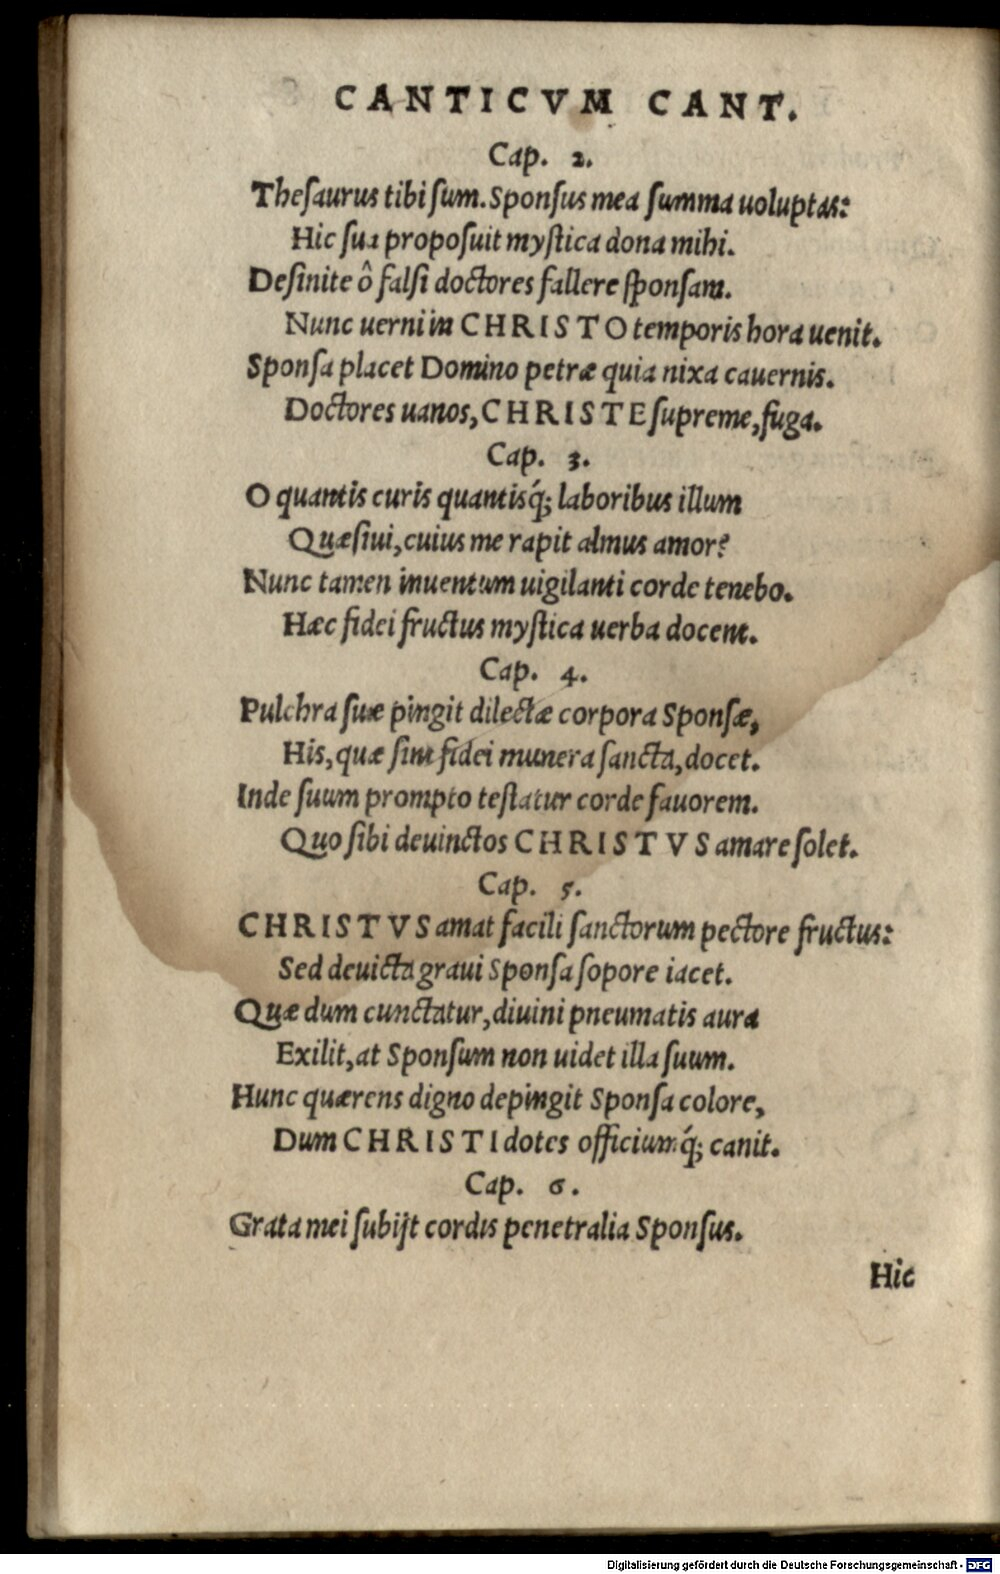 CANTICVM CANT.
Cap. 2.
Theſaurus tibi ſum. Sponſus mea ſumma uoluptas:
Hic ſua propoſuit myſtica dona mihi.
Deſinite ô falſi doctores fallere ſponſam.
Nunc uerni in CHRISTO temporis hora uenit.
Sponſa placet Domino petræ quia nixa cauernis.
Doctores uanos, CHRISTE ſupreme, fuga.
Cap. 3.
O quantis curis quantisq́; laboribus illum
Quæſiui, cuius me rapit almus amor?
Nunc tamen inuentum uigilanti corde tenebo.
Hæc fidei fructus myſtica uerba docent.
Cap. 4.
Pulchra ſuæ pingit dilectæ corpora Sponſæ,
His, quæ ſint fidei munera ſancta, docet.
Inde ſuum prompto teſtatur corde fauorem.
Quo ſibi deuinctos CHRISTVS amare ſolet.
Cap. 5.
CHRISTVS amat facili ſanctorum pectore fructus:
Sed deuicta graui Sponſa ſopore iacet.
Quæ dum cunctatur, diuini pneumatis aura
Exilit, at Sponſum non uidet illa ſuum.
Hunc quærens digno depingit Sponſa colore,
Dum CHRISTI dotes officiumq́; canit.
Cap. 6.
Grata mei ſubijt cordis penetralia Sponſus.
Hic
Digitalisierung gefördert durch die Deutsche Forschungsgemeinschaft - DFG